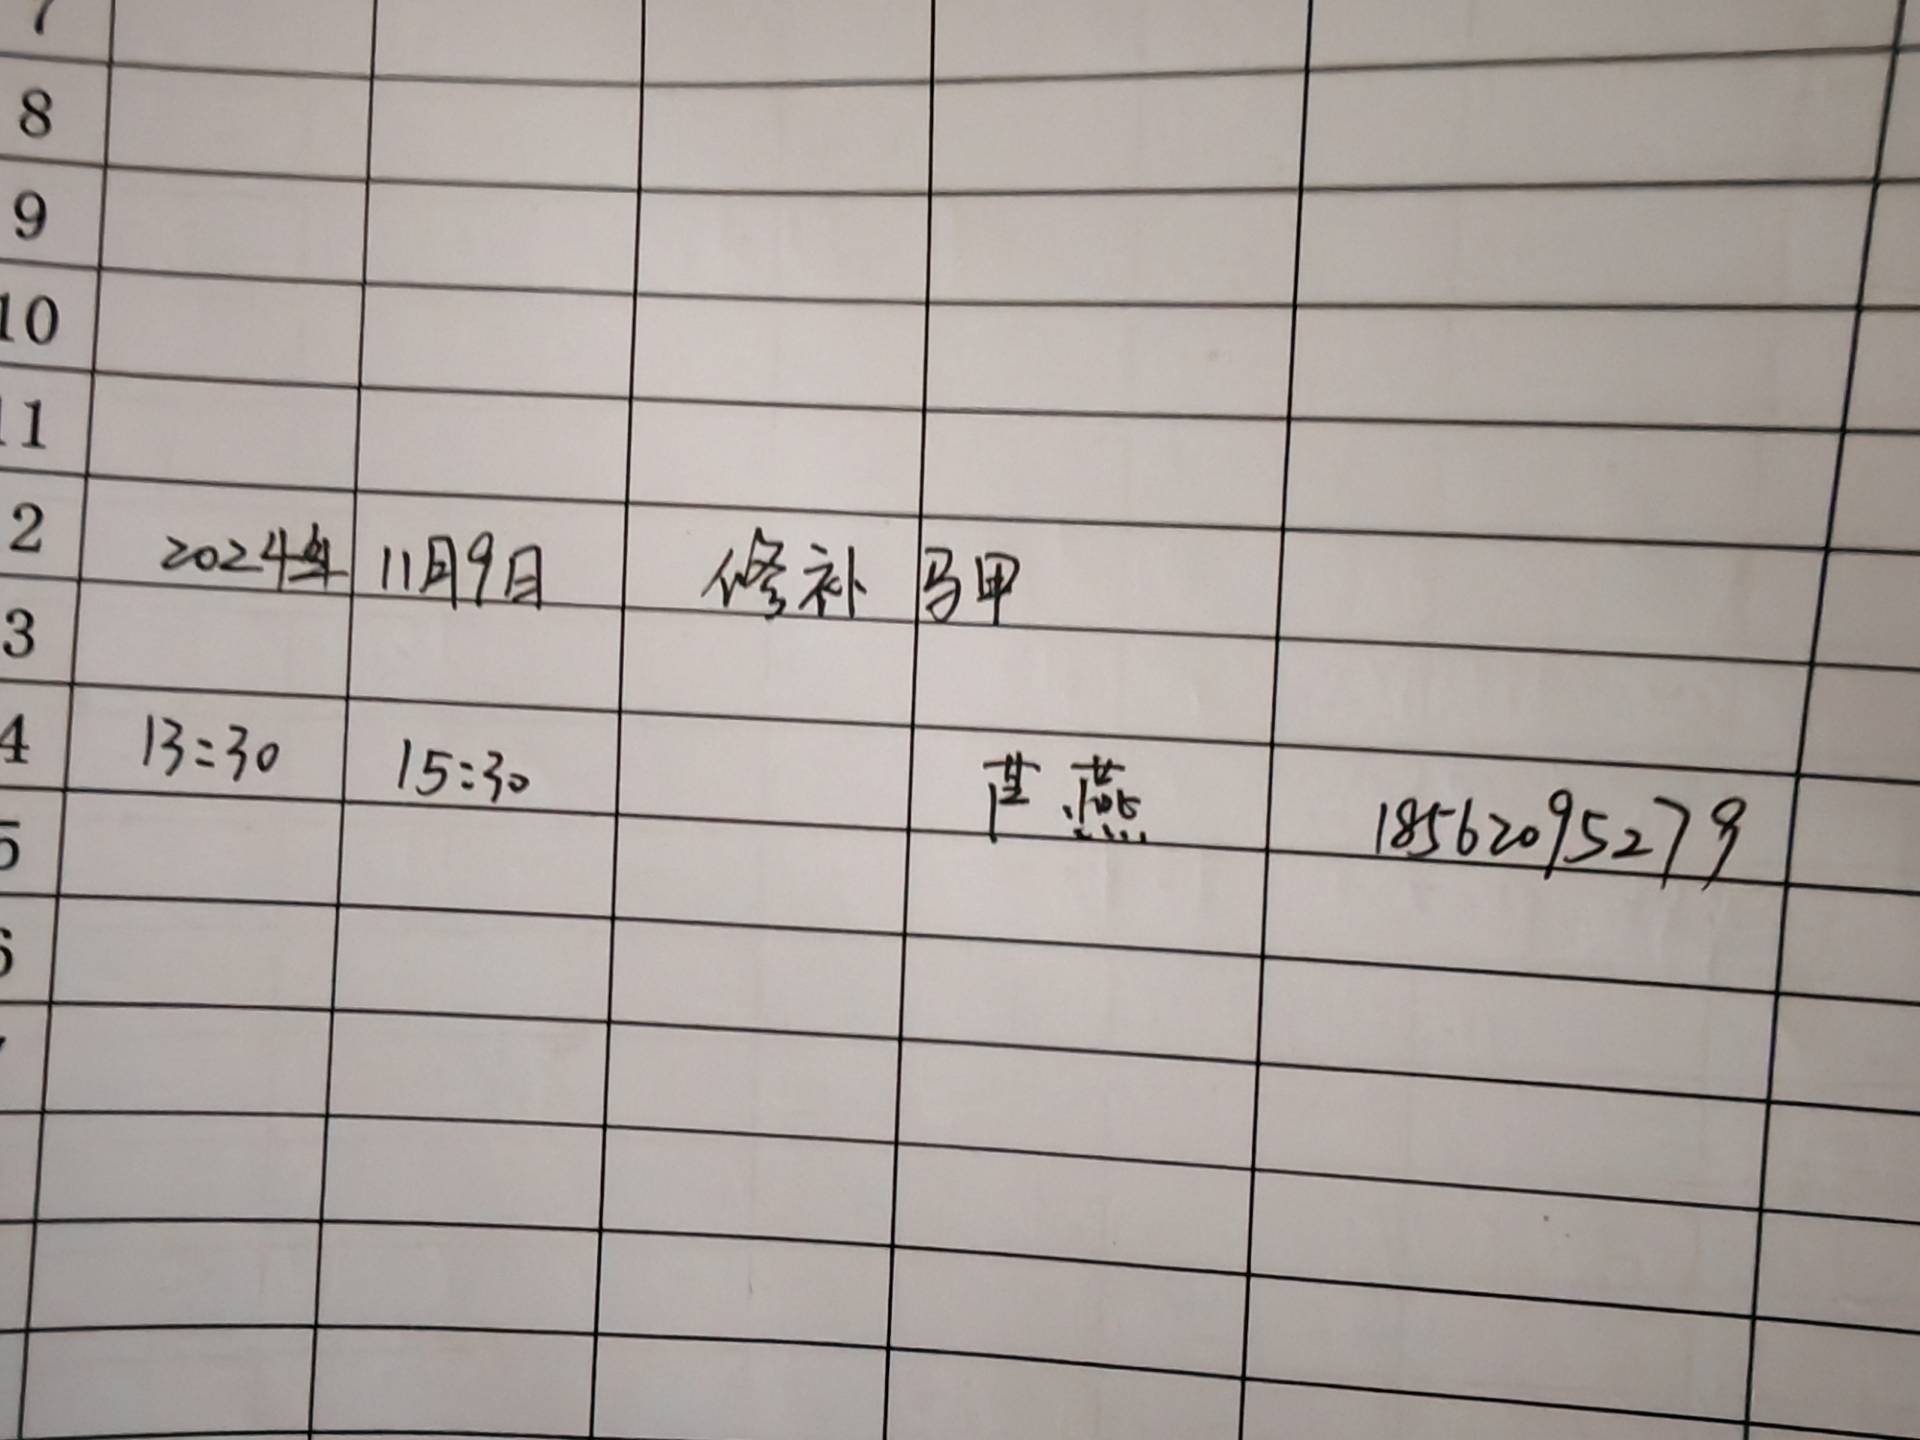 8
9
10
11
2 2024年 11月9日 修补 马甲
3
4 13:30 15:30 燕 18562095279
5